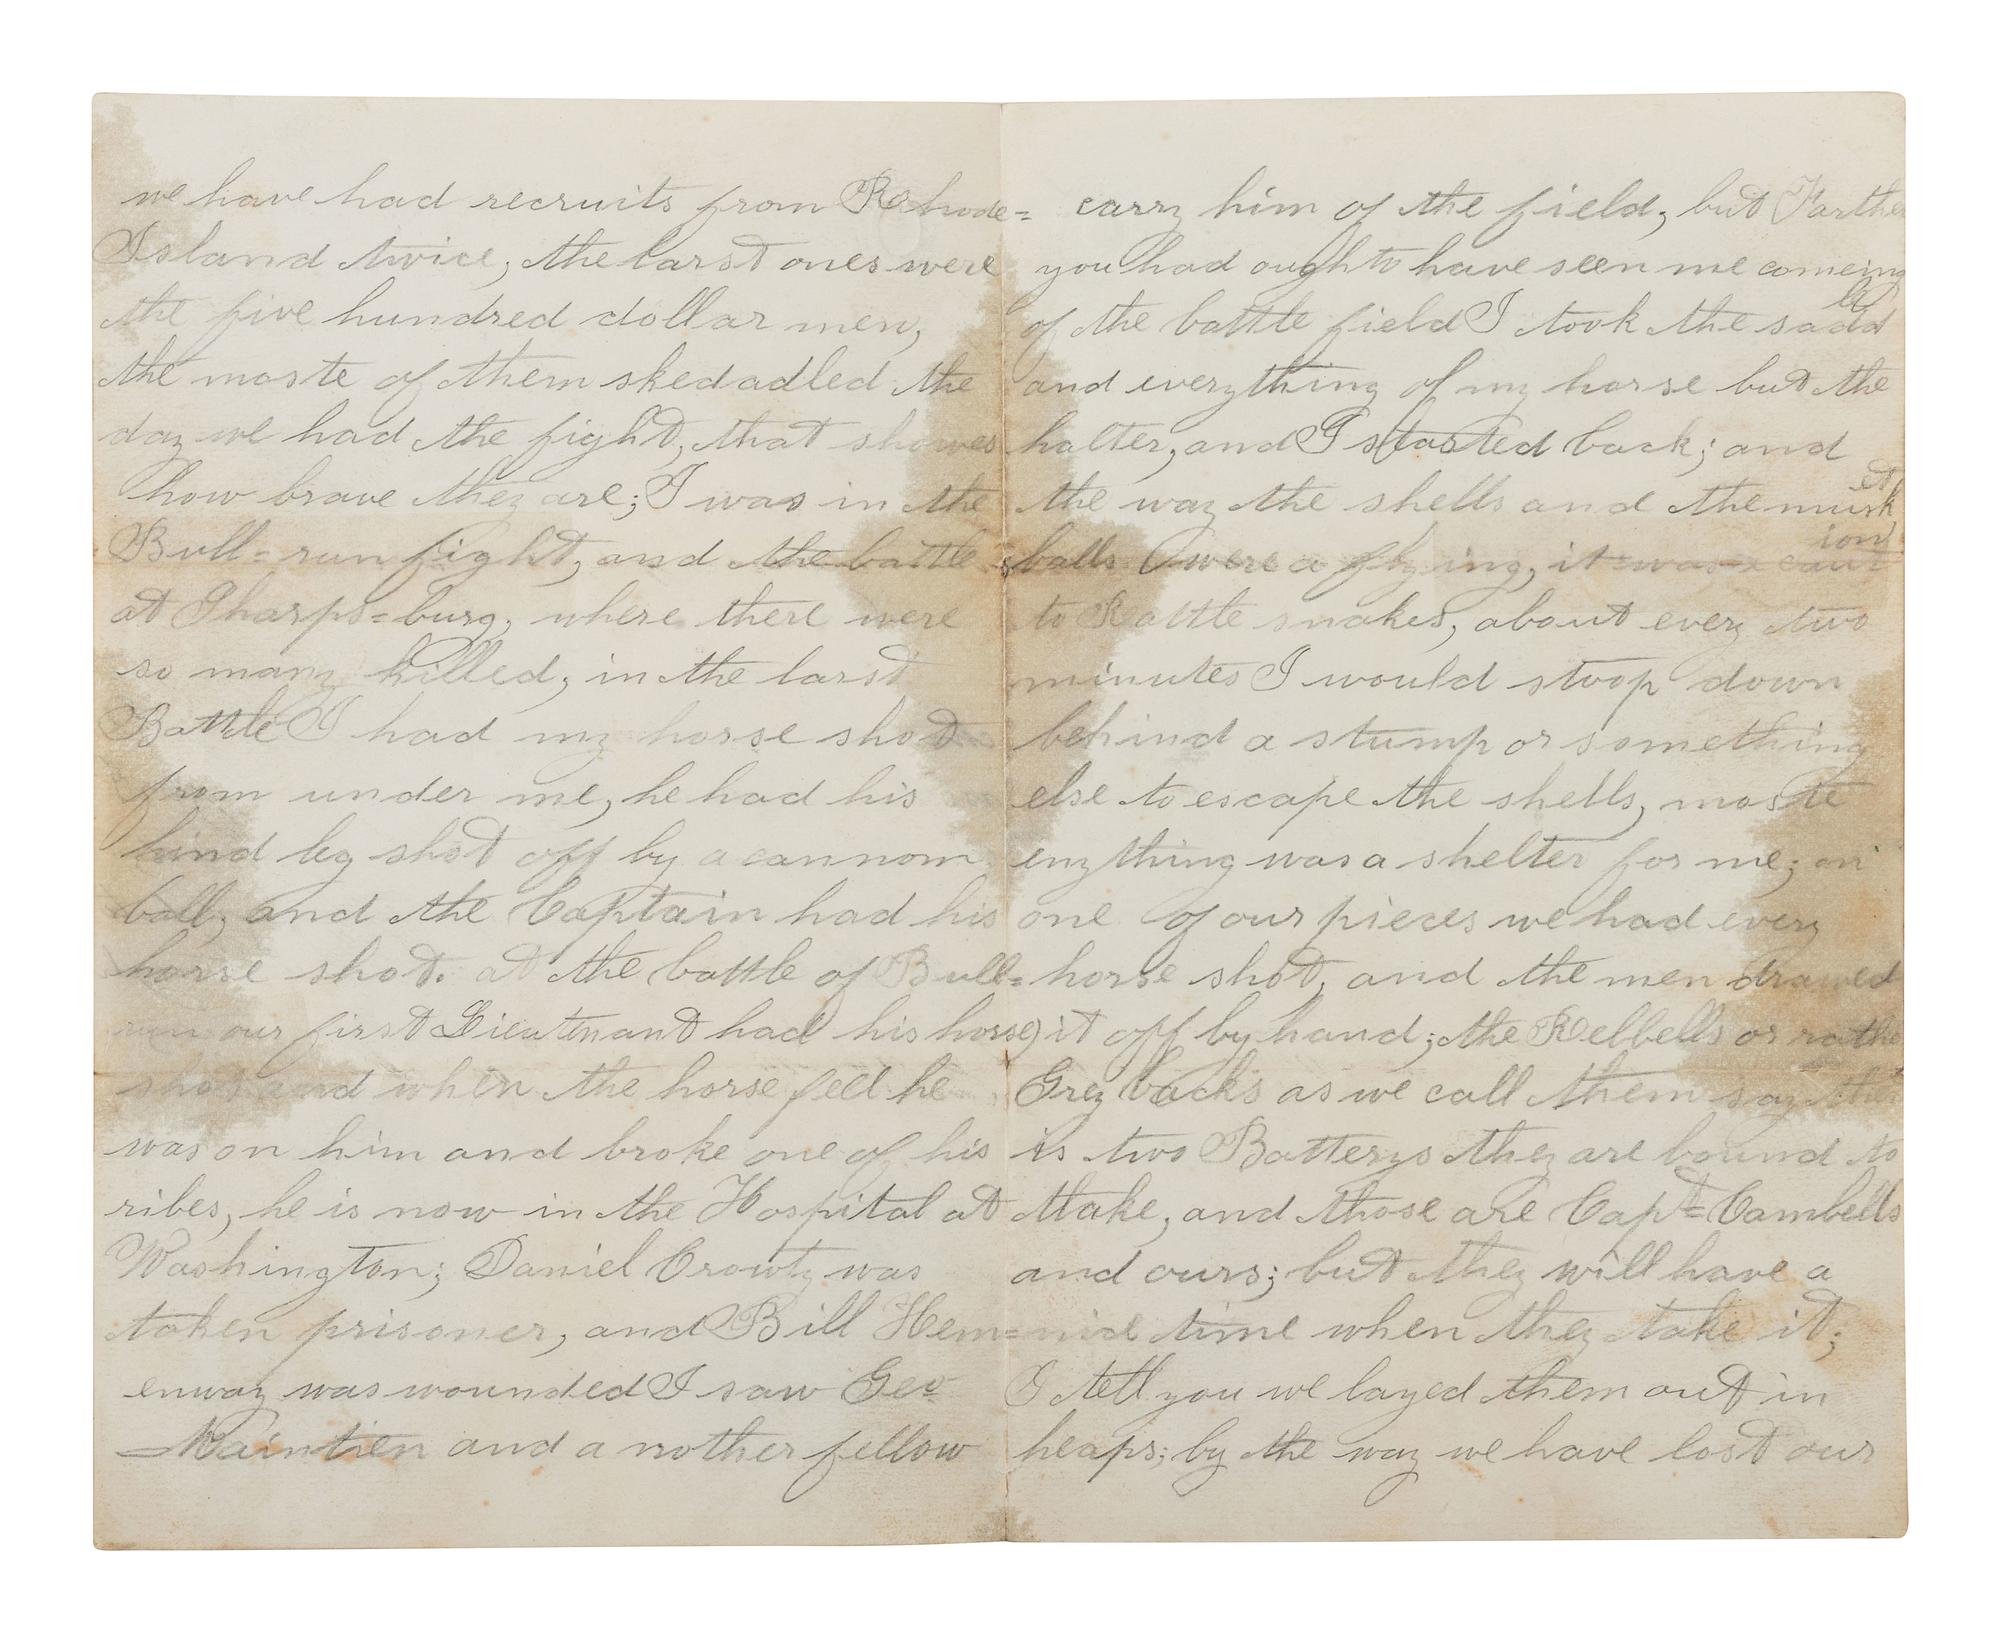 we have had recruits from Rohode=
Island twice, the larst ones were
the five hundred dollar men,
the moste of them skedadled the
day we had the fight, that showes
how brave they are; I was in the
Bull=run fight, and the battle
at Sharps=burg, where there were
so many killed, in the larst
Battle I had my horse shot
from under me, he had his
hind leg shot off by a cannom
ball, and the Captain had his
horse shot. at the battle of Bull=
run our first Lieutnant had his horse
shot and when the horse fell he
was on him and broke one of his
ribes, he is now in the Hospital at
Washington; Daniel Crowty was
taken prisoner, and Bill Hem=
enway was wounded I saw Geo
Maintien and a nother fellow
carry him of the field, but Farther
you had ought to have seen me comeing
of the battle field I took the saddle
and everything of my horse but the
halter, and I started back; and
the way the shells and the musket
balls were a flying, it was a caution
to Rattle snakes, about every two
minutes I would stoop down
behind a stump or something
else to escape the shells, moste
enything was a shelter for me; on
one of our pieces we had every
horse shot, and the men drawed
it off by hand; the Rebbells or rathe
Grey backs as we call them say ther
is two Batterys they are bound to
take, and those are Capt= Cambells
and ours; but they will have a
nice time when they take it;
I tell you we layed them out in
heaps; by the way we have lost our